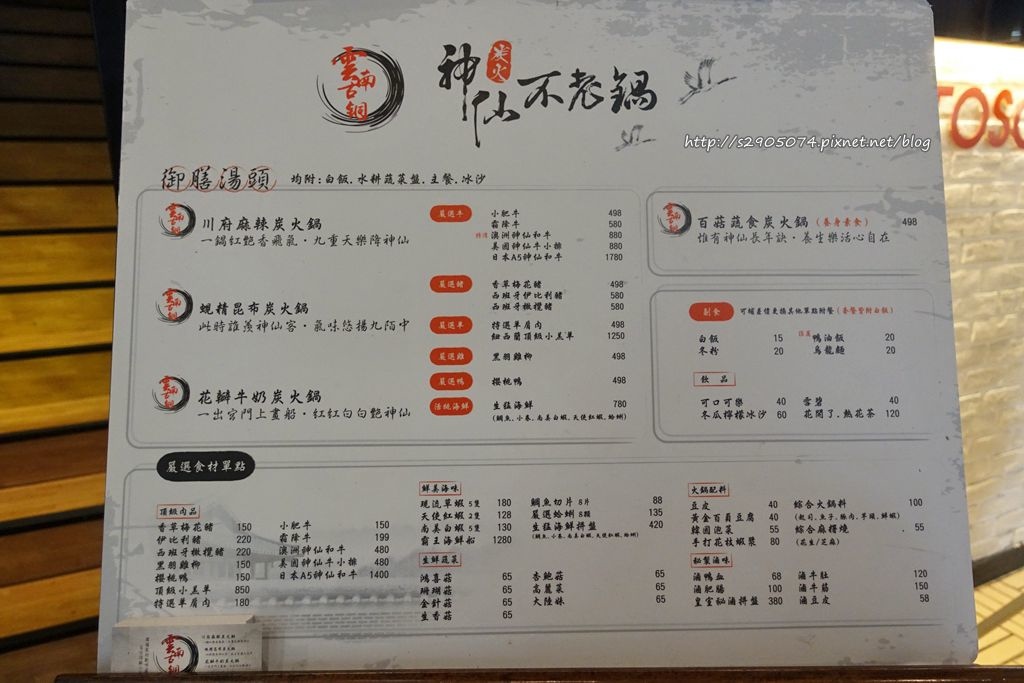 雲南古銅
神仙炭火不老鍋
http://s2905074.pixnet.net/blog
TOSC
御膳湯頭 均附:白飯.水耕蔬菜盤.主餐.冰沙
川府麻辣炭火鍋
一鍋紅艷香飛氣·九重天樂降神仙
蜆精昆布炭火鍋
此時誰羨神仙客·氣味悠揚九陌中
花瓣牛奶炭火鍋
一出宮門上畫船·紅紅白白艷神仙
嚴選牛 小肥牛 498
霜降牛 580
特選 澳洲神仙和牛 880
美國神仙牛小排 880
日本A5神仙和牛 1780
嚴選豬 香草梅花豬 498
西班牙伊比利豬 580
西班牙橄欖豬 580
嚴選羊 特選羊肩肉 498
紐西蘭頂級小羔羊 1250
嚴選雞 黑羽雞柳 498
嚴選鴨 櫻桃鴨 498
活體海鮮 生猛海鮮 780
(鯛魚.小卷.南美白蝦.天使紅蝦.蛤蜊)
百菇蔬食炭火鍋 (養身素食) 498
惟有神仙長年訣·養生樂活心自在
副食 可補差價更換其他單點附餐(套餐皆附白飯)
白飯 15 推薦 鴨油飯 20
冬粉 20 烏龍麵 20
飲品
可口可樂 40 雪碧 40
冬瓜檸檬冰沙 60 花開了.熱花茶 120
嚴選食材單點
頂級肉品
香草梅花豬 150
伊比利豬 220
西班牙橄欖豬 220
黑羽雞柳 150
櫻桃鴨 150
頂級小羔羊 850
特選羊肩肉 180
小肥牛 150
霜降牛 199
澳洲神仙和牛 480
美國神仙牛小排 480
日本A5神仙和牛 1400
鮮美海味
現流草蝦 5隻 180
天使紅蝦 2隻 128
南美白蝦 5隻 130
霸王海鮮船 1280
鯛魚切片 8片 88
嚴選蛤蜊 8顆 135
生猛海鮮拼盤 420
(鯛魚.小卷.南美白蝦.天使紅蝦.蛤蜊)
生鮮蔬菜
鴻喜菇 65
珊瑚菇 65
金針菇 65
生香菇 65
杏鮑菇 65
高麗菜 65
大陸妹 65
火鍋配料
豆皮 40
黃金百頁豆腐 40
韓國泡菜 55
手打花枝蝦漿 80
綜合火鍋料 100
綜合麻糬燒 55
(花生/芝麻)
秘製滷味
滷鴨血 68
滷肥腸 100
皇室秘滷拼盤 380
滷牛肚 120
滷牛筋 150
滷豆皮 58
雲南古銅